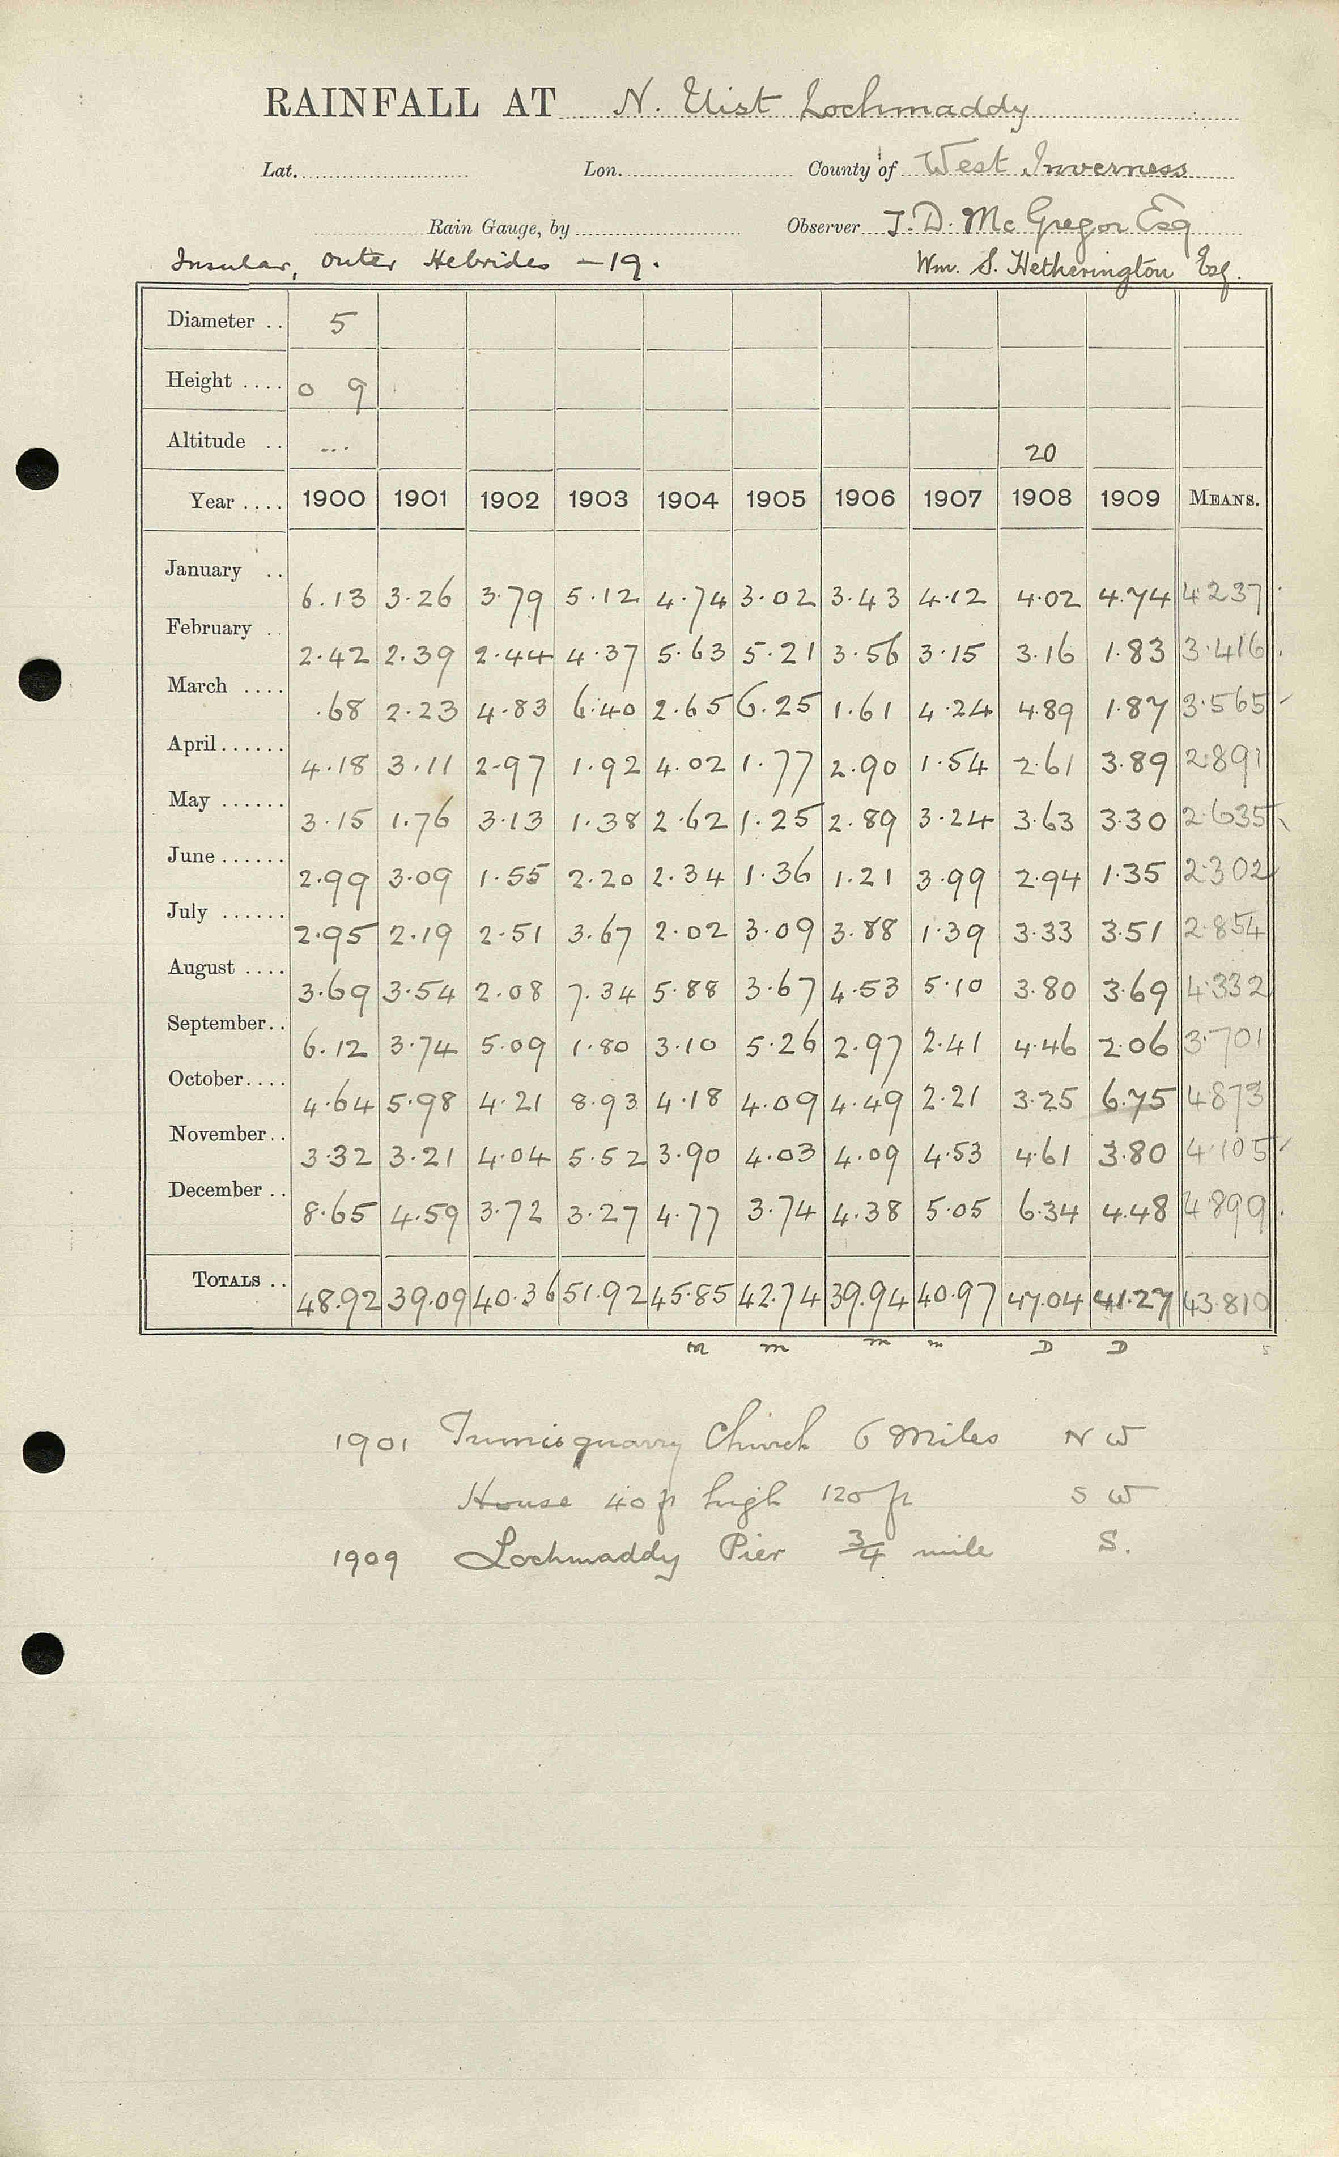 RAINFALL AT N. Uist Lochmaddy
Lat. Lon. County of West Inverness
Rain Gauge, by Observer T. D. McGregor Esq
Insular, Outer Hebrides – 19. Wm. S. Hetherington Esq.
Diameter .. 5
Height .... 0 9
Altitude .. ... 20
Year .... 1900 1901 1902 1903 1904 1905 1906 1907 1908 1909 MEANS.
January .. 6.13 3.26 3.79 5.12 4.74 3.02 3.43 4.12 4.02 4.74 4.237
February .. 2.42 2.39 2.44 4.37 5.63 5.21 3.56 3.15 3.16 1.83 3.416
March .... .68 2.23 4.83 6.40 2.65 6.25 1.61 4.24 4.89 1.87 3.565
April...... 4.18 3.11 2.97 1.92 4.02 1.77 2.90 1.54 2.61 3.89 2.891
May ...... 3.15 1.76 3.13 1.38 2.62 1.25 2.89 3.24 3.63 3.30 2.635
June...... 2.99 3.09 1.55 2.20 2.34 1.36 1.21 3.99 2.94 1.35 2.302
July ...... 2.95 2.19 2.51 3.67 2.02 3.09 3.88 1.39 3.33 3.51 2.854
August .... 3.69 3.54 2.08 7.34 5.88 3.67 4.53 5.10 3.80 3.69 4.332
September.. 6.12 3.74 5.09 1.80 3.10 5.26 2.97 2.41 4.46 2.06 3.701
October.... 4.64 5.98 4.21 8.93 4.18 4.09 4.49 2.21 3.25 6.75 4.873
November.. 3.32 3.21 4.04 5.52 3.90 4.03 4.09 4.53 4.61 3.80 4.105
December .. 8.65 4.59 3.72 3.27 4.77 3.74 4.38 5.05 6.34 4.48 4.899
TOTALS .. 48.92 39.09 40.36 51.92 45.85 42.74 39.94 40.97 47.04 41.27 43.810
m m m m D D
1901 Church 6 Miles N W
House 40 ft high 120 ft S W
1909 Lochmaddy Pier ¾ mile S.